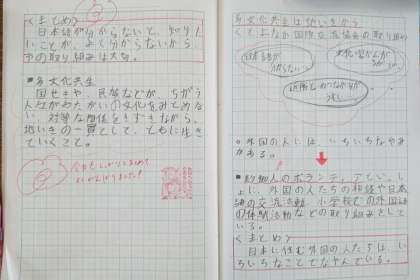 くまとめ＞
日本語が分からないと、知りたい
ことが、よく分からないから
やの取り組みは大切。
■多文化共生
国せきや、民族などが、ちがう
人々がたがいの文化をみとめ合
い、対等な関係をきずきながら、
地いきの一員として、ともに生き
ていくこと。
今日もしっかりとまとめて
よくがんばりました！
多文化共生は地いきから
くとよなか国際交流協会の取り組み
日本語が
分からない
文化・習かんが
ちがう
近所とのつながりが
ない
○外国の人には、いろいろななやみ
がある。
■地いきの人のボランティアといっ
しょに、外国の人たちの相談や日本
語の交流活動、小学校での外国語
の体験活動などの取り組みをして
いる。
くまとめ＞
日本に住む外国の人たちは、い
ろいろなことでなやんでいる。